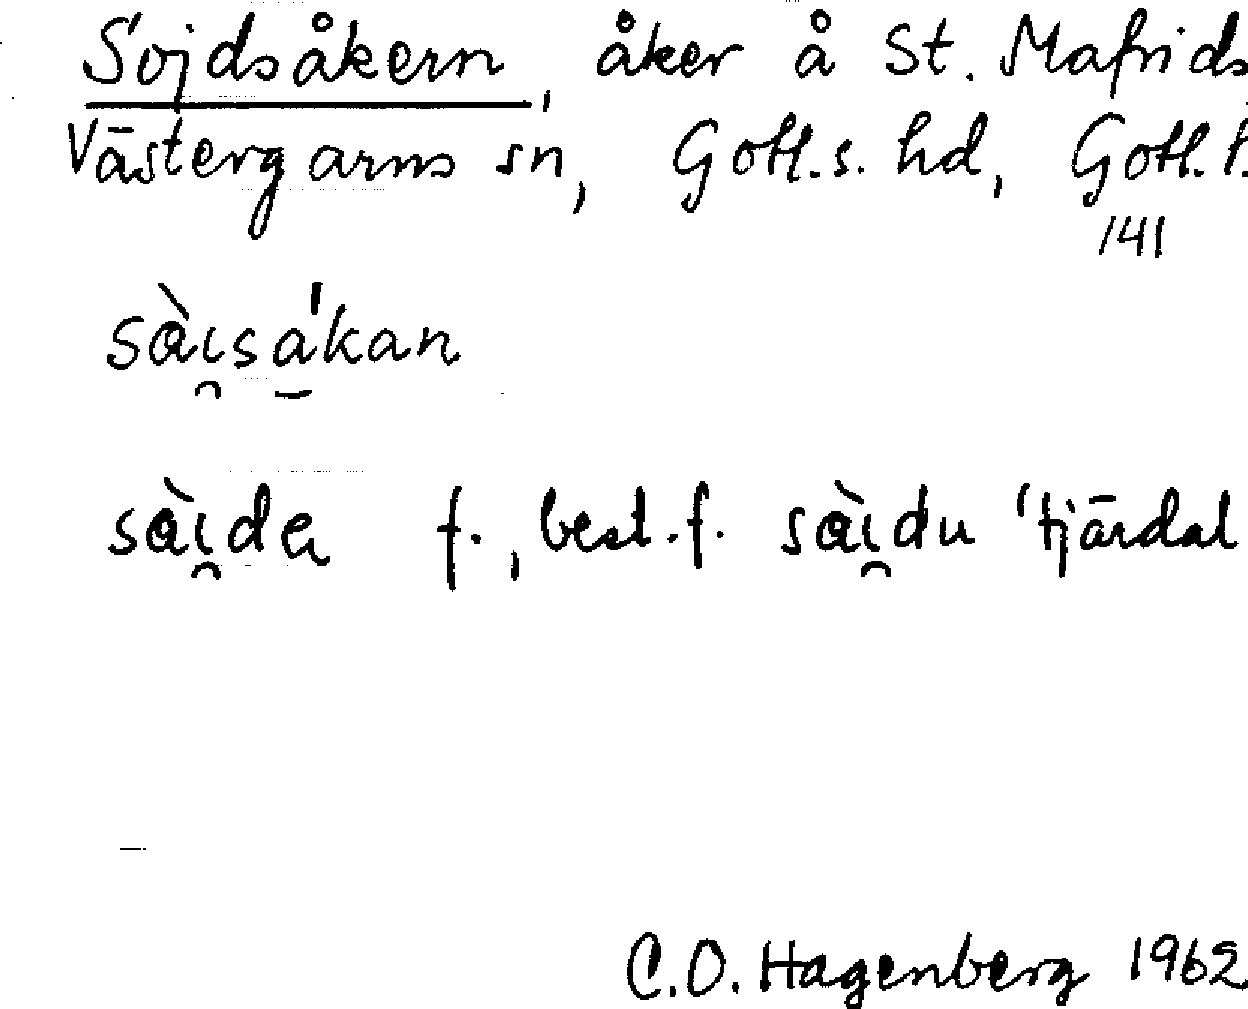 Sojdsåkern, åker å St. Mafrids
Västergarns sn, Gotl.s. hd, Gotl.
141
sàɩ̯sá̠kan
sàɩ̯da f., best.f. sàɩ̯du 'tjärdal
C.O. Hagenberg 1962